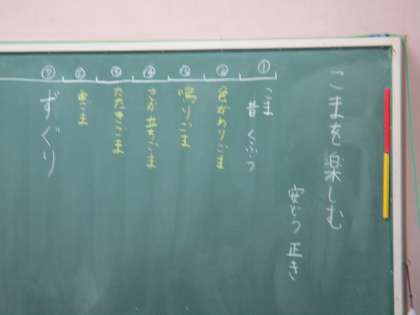 こまを楽しむ
安どう 正き
① ② ③ ④ ⑤ ⑥ ⑦
こま
昔 くふう
色がわりごま
鳴りごま
さか立ちごま
たたきごま
曲ごま
ずぐり